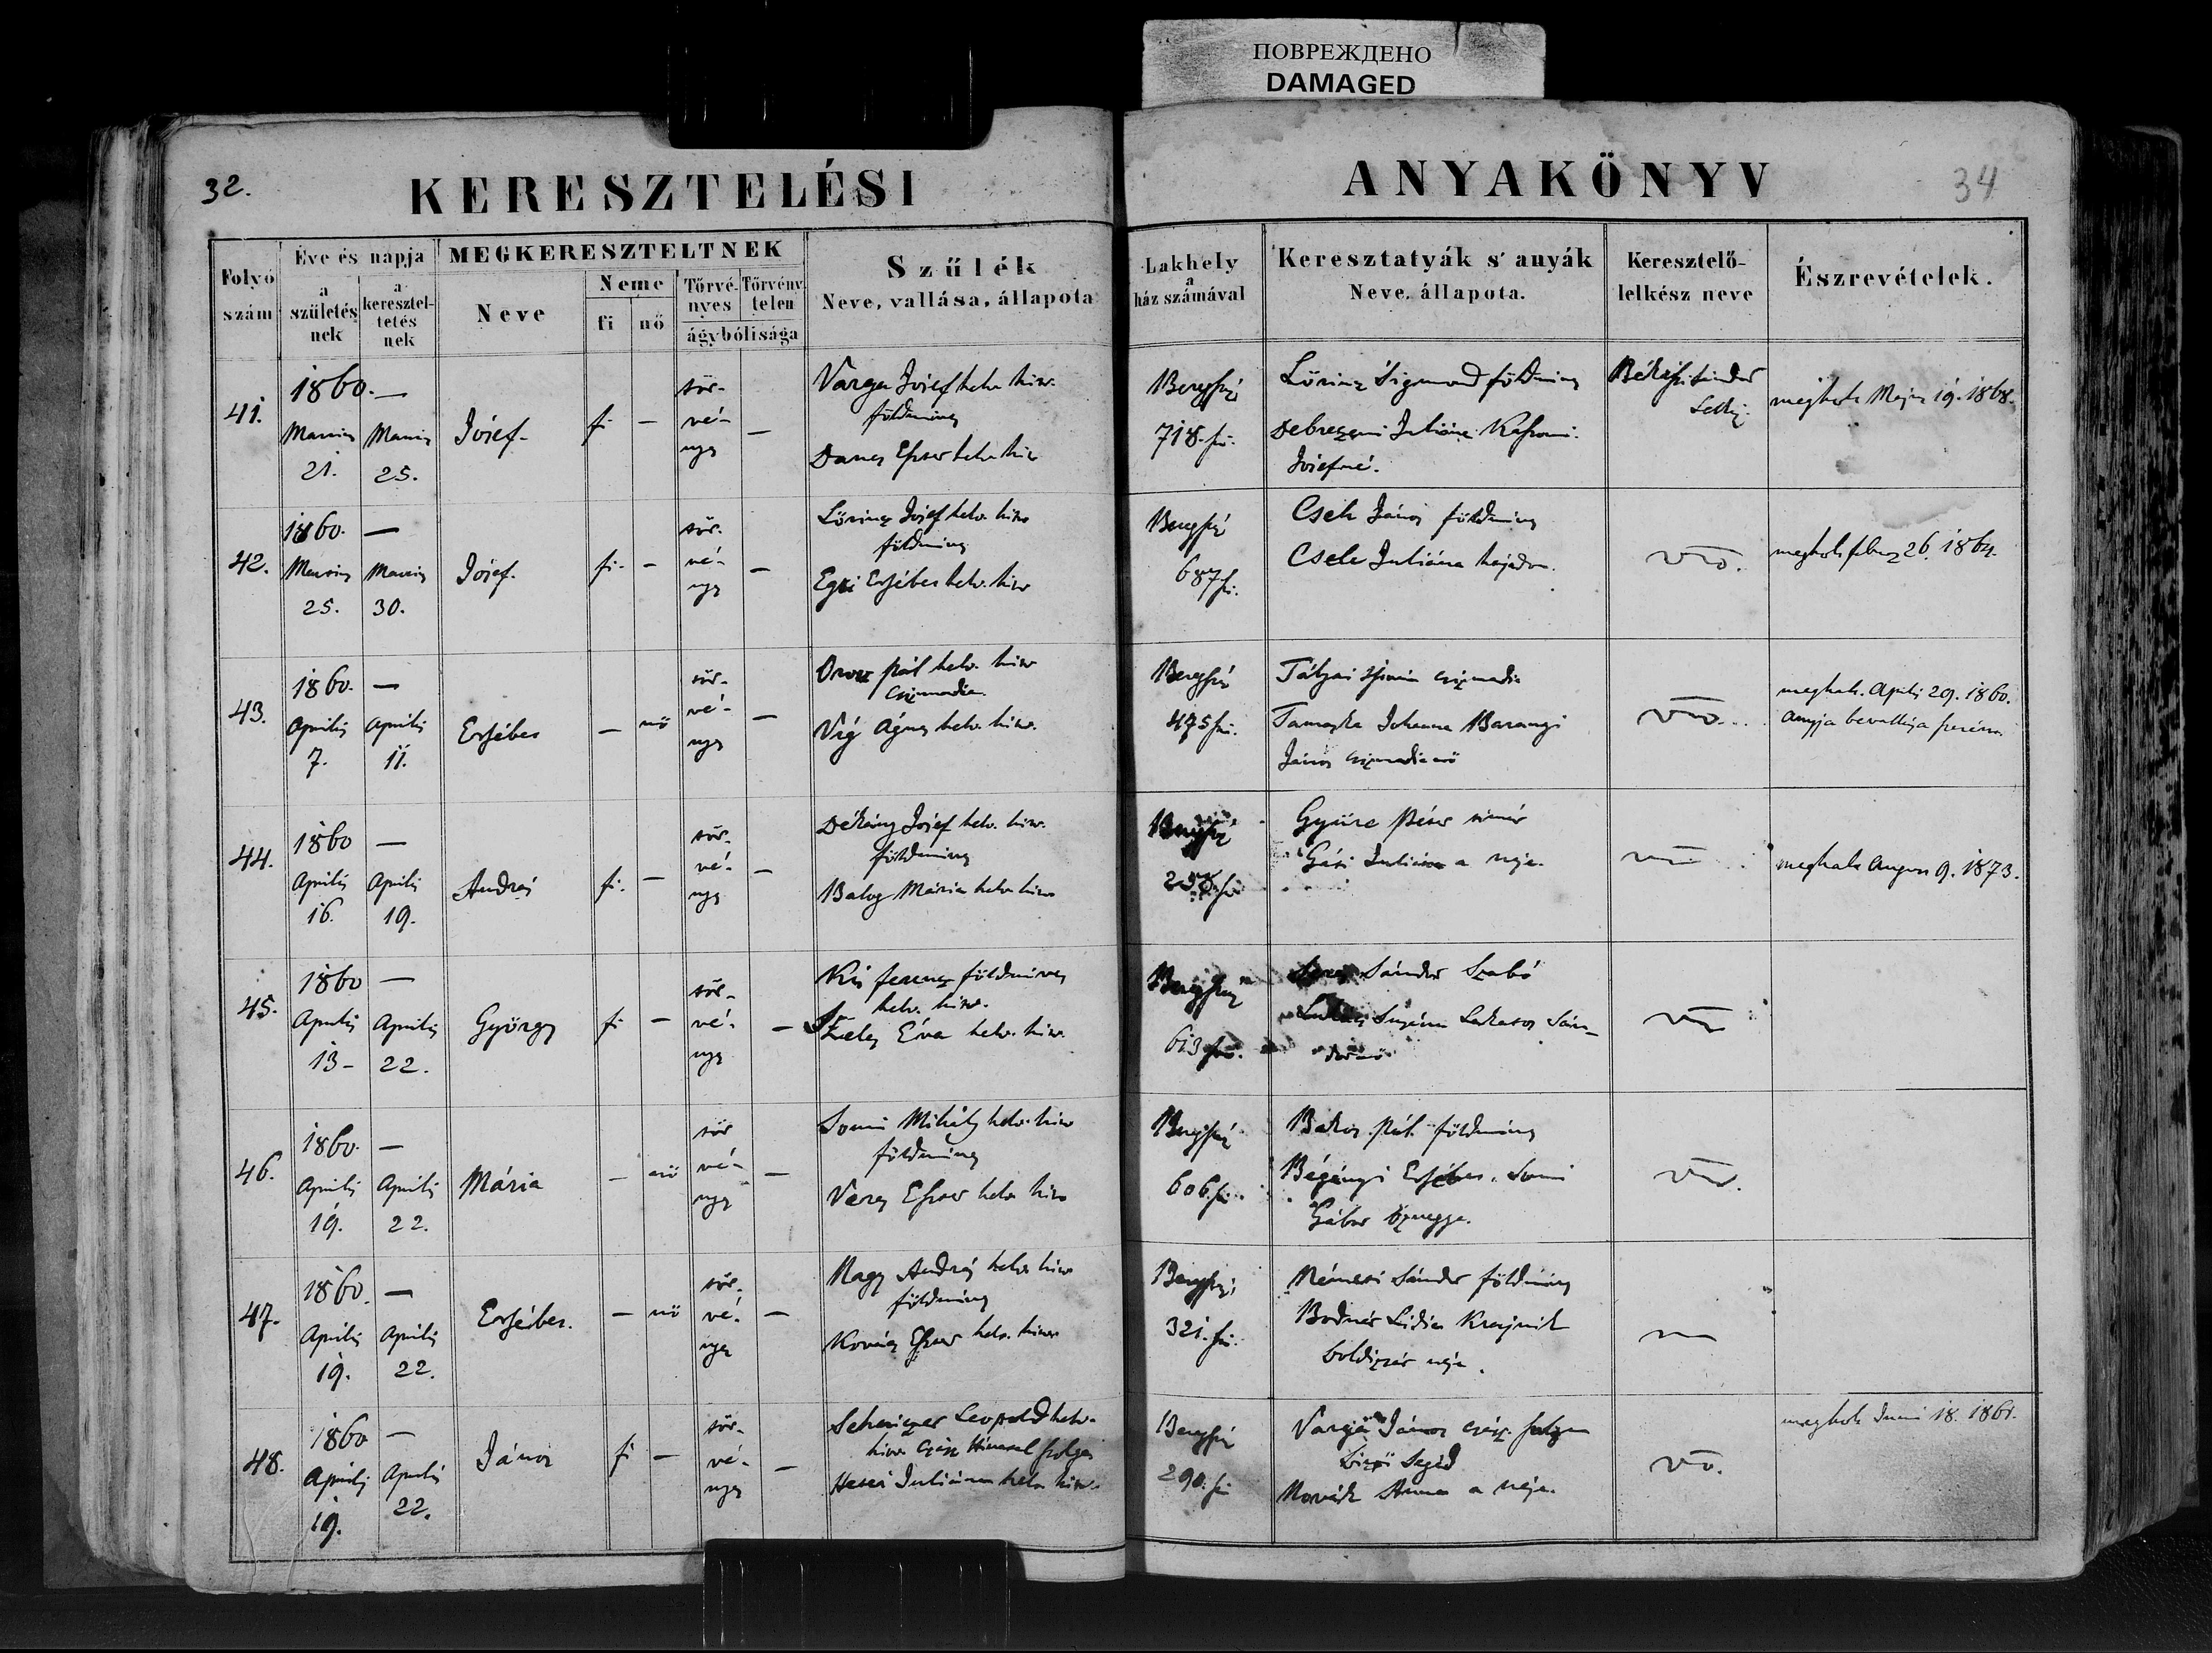 ПОВРЕЖДЕНО
DAMAGED
32.
KERESZTELÉSI
ANYAKÖNYV
34
Folyó szám
Éve és napja
a születés nek
a keresztel- tetés nek
MEGKERESZTELTNEK
Neve
Neme
fi
nő
Törvé- nyes
Törvény telen
ágybólisága
Szűlék
Neve, vallása, állapota
Lakhely
a
ház számával
Keresztatyák s' anyák
Neve, állapota.
Keresztelő-
lelkész neve
Észrevételek.
41.
1860. —
Marcius 21.
Marcius 25.
Jósef.
fi. —
tör-
vé-
nys
—
Varga Jósef helv. hitv.
földmives
Dancs Eszter helv. hitv
Beregszáz
718. sz.
Lőrincz Sigmond földmives
Debreczeni Juliána
Jósefné.
meghalt Majus 19. 1868.
42.
1860. —
Marcius 25.
Marcius 30.
Jósef.
fi. —
tör-
vé-
nys
—
Lőrincz Jósef helv. hitv
földmives
Egri Ersébet helv. hitv
Beregszáz
687 sz.
Cseh János földmives
Cseh Juliána hajadon.
meghalt febru 26. 1864.
43.
1860. —
Aprilis 7.
Aprilis 11.
Ersébet
— nő
tör-
vé-
nys
—
Orosz Pál helv. hitv
csizmadia
Víg Ágnes helv. hitv.
Beregszáz
475 sz.
csizmadia
Tamaska Johanna Barangi
János csizmadia nő
meghalt. Aprilis 29. 1860.
anyja bevallása szerint
44.
1860 —
Aprilis 16.
Aprilis 19.
András
fi. —
tör-
vé-
nys
—
Dékány Jósef helv. hitv.
földmives
Balog Mária helv. hitv
Beregszáz
Gyüre Péter
Juliána a neje.
meghalt August 9. 1873.
45.
1860 —
Aprilis 13-
Aprilis 22.
György
fi —
tör-
vé-
nys
—
Kis ferencz földmives
helv. hitv.
Széles Éva helv. hitv.
Beregszáz
613 sz.
Sándor Szabó
Susána Lakatos Sán-
dor nő
46.
1860. —
Aprilis 19.
Aprilis 22.
Mária
— nő
tör
vé-
nys
—
Somi Mihály helv. hitv
földmives
Veres Eszter helv. hitv
Beregszáz
606. sz.
Bakos Pál földmives
Bégányi Ersébet. Somi
Gábor özvegye.
47.
1860. —
Aprilis 19.
Aprilis 22.
Ersébet.
— nő
tör-
vé-
nys
—
Nagy András helv. hitv
földmives
Kovács Eszter helv. hitv
Beregszáz
321. sz.
Németi Sándor földmives
Bodnár Lidia Krajnik
boldizsár neje.
48.
1860 —
Aprilis 19.
Aprilis 22.
János
fi —
tör-
vé-
nys
—
Leopold helv.
hitv. szolga
Juliánna helv. hitv.
Beregszáz
290. sz.
Varga János szolga
Novák Anna a neje.
meghalt Juni 18. 1861.